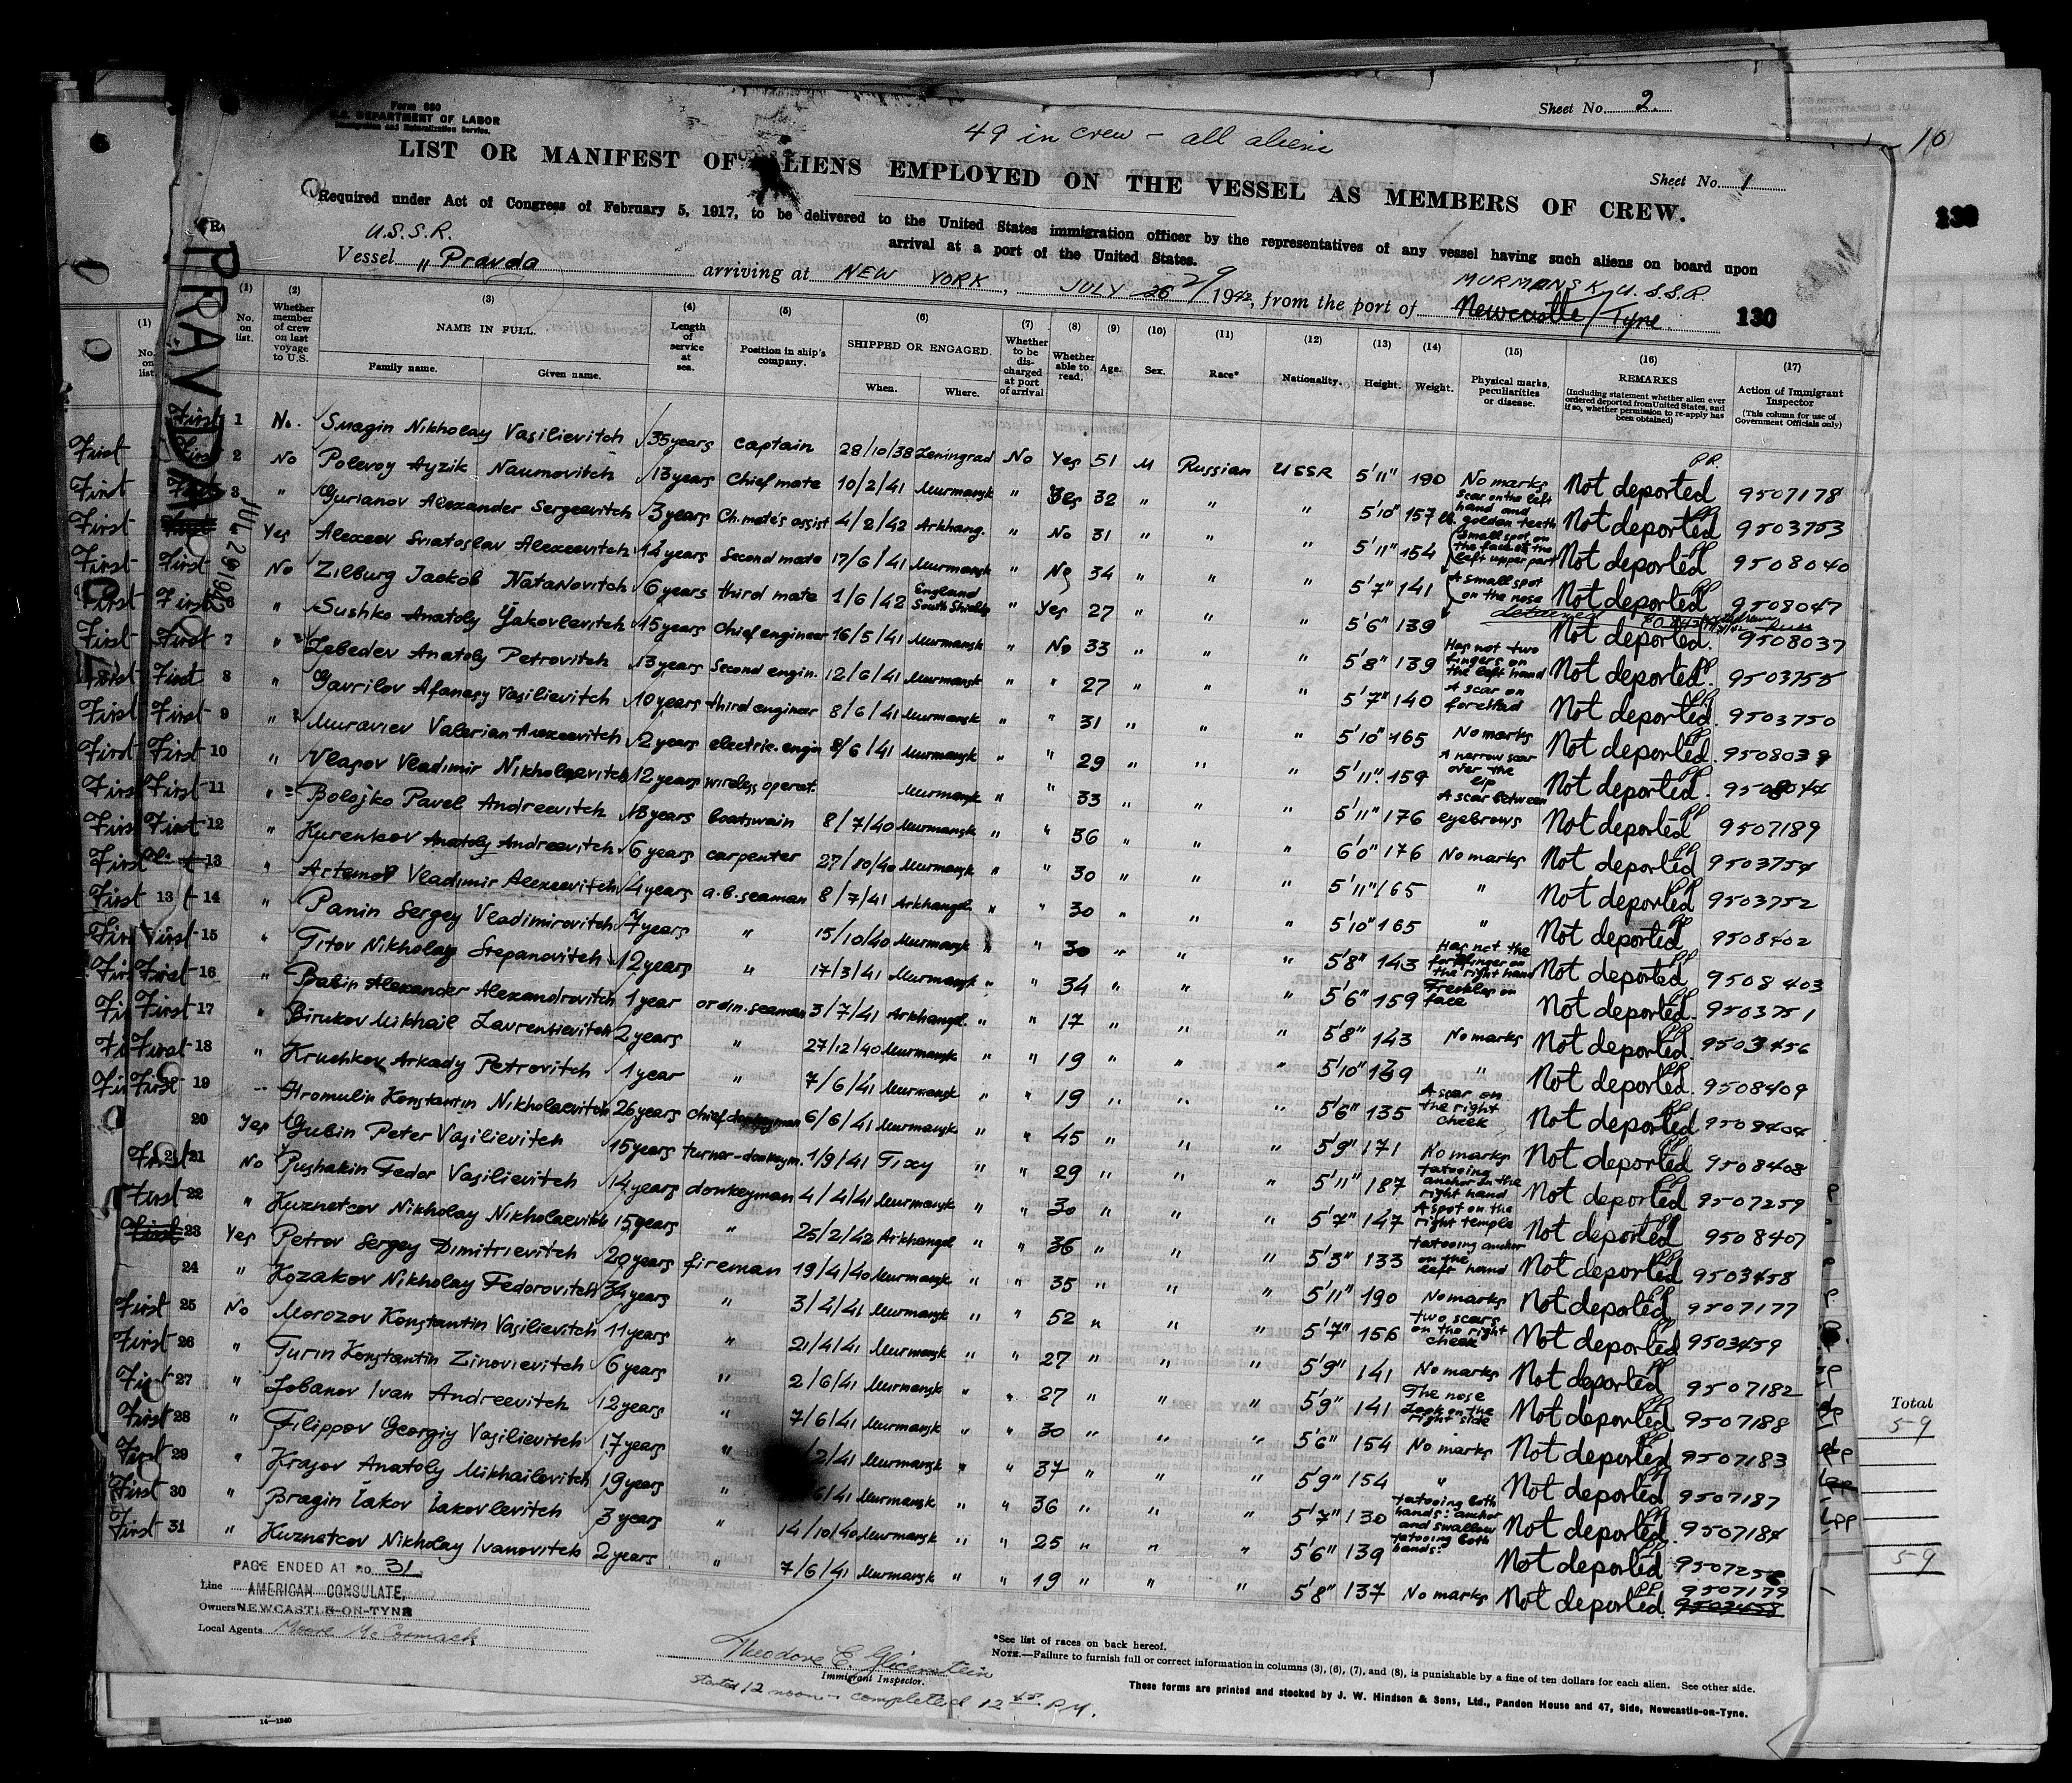 Sheet No. 2.
Form 680
U.S. DEPARTMENT OF LABOR
Immigration and Naturalization Service.
49 in crew - all aliens
LIST OR MANIFEST OF ALIENS EMPLOYED ON THE VESSEL AS MEMBERS OF CREW.
Sheet No. 1
10
130
Required under Act of Congress of February 5, 1917, to be delivered to the United States immigration officer by the representatives of any vessel having such aliens on board upon
arrival at a port of the United States.
U.S.S.R.
Vessel „Pravda arriving at NEW YORK, JULY 26 29/1942, from the port of Newcastle/Tyne. MURMANSK U.S.S.R. 130
PRAVDA
JUL 29 1942
(1) No. on list.
(2) Whether member of crew on last voyage to U.S.
(3) NAME IN FULL. Family name. Given name.
(4) Length of service at sea.
(5) Position in ship's company.
(6) SHIPPED OR ENGAGED. When. Where.
(7) Whether to be discharged at port of arrival
(8) Whether able to read.
(9) Age.
(10) Sex.
(11) Race*
(12) Nationality.
(13) Height.
(14) Weight.
(15) Physical marks, peculiarities or disease.
(16) REMARKS (Including statement whether alien ever ordered deported from United States, and if so, whether permission to re-apply has been obtained)
(17) Action of Immigrant Inspector (This column for use of Government Officials only)
First 1 No. Smagin Nikholay Vasilievitch 35 years captain 28/10/38 Leningrad No Yes 51 M Russian USSR 5'11" 190 No marks Not deported 9507178
First 2 No Polevoy Ayzik Naumovitch 13 years Chief mate 10/2/41 Murmansk " Yes 32 " " " 5'10" 157 Scar on the left hand and golden teeth Not deported 9503753
First 3 " Gurianov Alexander Sergeevitch 3 years Ch. mate's assist 4/2/42 Arkhang. " No 31 " " " 5'11" 154 Small spot on the face on the left upper part Not deported 9508040
First 4 Yes Alexeev Sviatoslav Alexeevitch 14 years Second mate 17/6/41 Murmansk " No 34 " " " 5'7" 141 A small spot on the nose Not deported 9508047
First No Zilburg Jackob Natanovitch 6 years third mate 1/6/42 England South Shields " Yes 27 " " " 5'6" 139 Not deported. 9508037
First 6 " Sushko Anatoly Yakovlevitch 15 years Chief engineer 16/5/41 Murmansk " No 33 " " " 5'8" 139 Has not two fingers on the left hand Not deported. 9503755
First 7 " Lebedev Anatoly Petrovitch 13 years Second engin. 12/6/41 Murmansk " " 27 " " " 5'7" 140 A scar on forehead Not deported. 9503750
First 8 " Gavrilov Afanasy Vasilievitch 10 years third engineer 8/6/41 Murmansk " " 31 " " " 5'10" 165 No marks Not deported. 9508039
First 9 " Muraviev Valerian Alexeevitch 2 years electric. engin 8/6/41 Murmansk " " 29 " " " 5'11" 159 A narrow scar over the lip Not deported. 9508044
First 10 " Vlasov Vladimir Nikholaevitch 12 years wireless operat. Murmansk " " 33 " " " 5'11" 176 A scar between eyebrows Not deported 9507189
First 11 " Bolojko Pavel Andreevitch 13 years boatswain 8/7/40 Murmansk " " 36 " " " 6'0" 176 No marks Not deported 9503754
First 12 " Kurenkov Anatoly Andreevitch 6 years carpenter 27/10/40 Murmansk " " 30 " " " 5'11" 165 " Not deported 9503752
13 " Artemov Vladimir Alexeevitch 4 years a.b. seaman 8/7/41 Arkhangel. " " 30 " " " 5'10" 165 " Not deported 9508402
First 13 14 " Panin Sergey Vladimirovitch 7 years " 15/10/40 Murmansk " " 30 " " " 5'8" 143 Has not the forefinger on the right hand Not deported 9508403
First 15 " Titov Nikholay Stepanovitch 12 years " 17/3/41 Murmansk " " 34 " " " 5'6" 159 Freckles on face Not deported. 9503751
First 16 " Babin Alexander Alexandrovitch 1 year ordin. seaman 3/7/41 Arkhangel. " " 17 " " " 5'8" 143 No marks Not deported. 9503456
First 17 " Birukov Mikhail Lavrentievitch 2 years " 27/12/40 Murmansk " " 19 " " " 5'10" 139 " Not deported. 9508409
First 18 " Kruchkov Arkady Petrovitch 1 year " 7/6/41 Murmansk " " 19 " " " 5'6" 135 A scar on the right cheek Not deported 9508404
First 19 " Hromulin Konstantin Nikholaevitch 26 years chief donkeyman 6/6/41 Murmansk " " 45 " " " 5'9" 171 No marks Not deported 9508408
20 Yes Gubin Peter Vasilievitch 15 years turner-donkeym. 1/9/41 Tixy " " 29 " " " 5'11" 187 tatooing anchor on the right hand Not deported 9507259
First 21 No Pushakin Fedor Vasilievitch 14 years donkeyman 4/4/41 Murmansk " " 30 " " " 5'7" 147 A spot on the right temple Not deported 9508407
First 22 " Kuznetcov Nikholay Nikholaevitch 15 years " 25/2/42 Arkhangel " " 36 " " " 5'3" 133 tatooing anchor on the left hand Not deported 9503458
First 23 Yes Petrov Sergey Dimitrievitch 20 years fireman 19/4/40 Murmansk " " 35 " " " 5'11" 190 No marks Not deported 9507177
24 " Kozakov Nikholay Fedorovitch 34 years " 3/4/41 Murmansk " " 52 " " " 5'7" 156 two scars on the right cheek Not deported 9503459
First 25 No Morozov Konstantin Vasilievitch 11 years " 21/4/41 Murmansk " " 27 " " " 5'9" 141 No marks Not deported 9507182
First 26 " Turin Konstantin Zinovievitch 6 years " 2/6/41 Murmansk " " 27 " " " 5'9" 141 The nose Look on the right side Not deported 9507188
First 27 " Lobanov Ivan Andreevitch 12 years " 7/6/41 Murmansk " " 30 " " " 5'6" 154 No marks Not deported 9507183
First 28 " Filippov Georgiy Vasilievitch 17 years " /2/41 Murmansk " " 37 " " " 5'9" 154 " Not deported 9507187
First 29 " Krasov Anatoly Mikhailovitch 19 years " 6/41 Murmansk " " 36 " " " 5'7" 130 tatooing both hands: anchor and swallow Not deported. 9507184
First 30 " Bragin Iakov Iakovlevitch 3 years " 14/10/40 Murmansk " " 25 " " " 5'6" 139 tatooing both hands. Not deported 9507256
First 31 " Kuznetcov Nikholay Ivanovitch 2 years " 7/6/41 Murmansk " " 19 " " " 5'8" 137 No marks Not deported 9507179 9503458
Total
59
59
PAGE ENDED AT NO. 31
Line AMERICAN CONSULATE,
Owners NEWCASTLE-ON-TYNE
Local Agents Moore McCormack
Theodore E. Glicenstein
Immigrant Inspector.
Started 12 noon - completed 12 45 P.M.
*See list of races on back hereof.
NOTE.—Failure to furnish full or correct information in columns (3), (6), (7), and (8), is punishable by a fine of ten dollars for each alien. See other side.
These forms are printed and stocked by J. W. Hindson & Sons, Ltd., Pandon House and 47, Side, Newcastle-on-Tyne.
14—1240